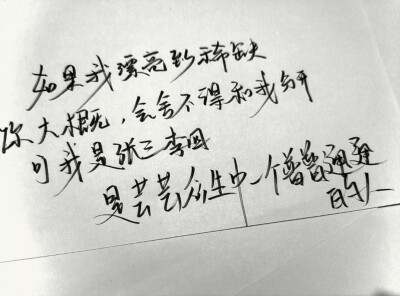 如果我漂亮到稀缺
你大概，会舍不得和我分开
可我是张三李四
是芸芸众生中一个普普通通
的人